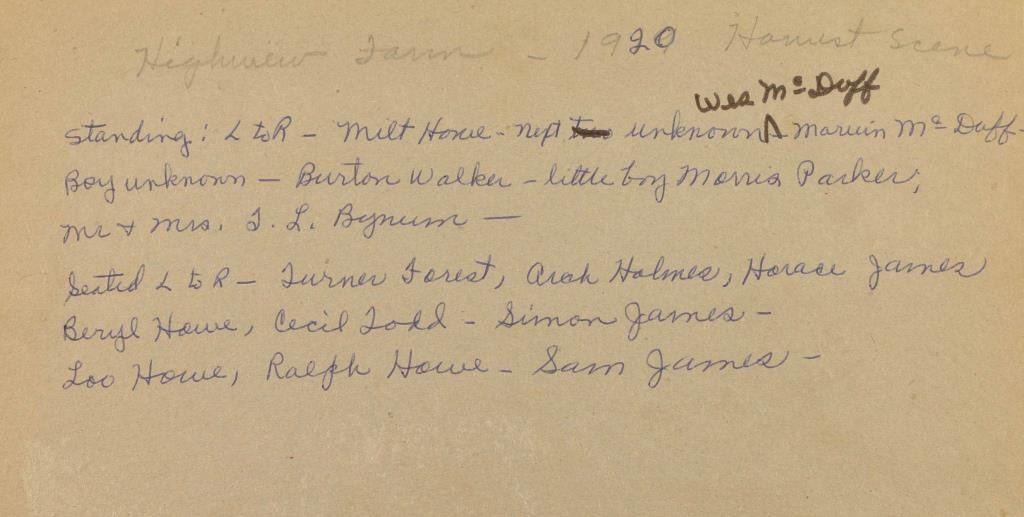 Highview Farm - 1920 Harvest Scene
Wes Mc Duff
Standing: L to R - Milt Howe - next unknown ∧ Marvin Mc Duff -
Boy unknown - Burton Walker - little boy Morris Parker;
Mr & Mrs. T. L. Bynum -
Seated L to R - Turner Forest, Arch Holmes, Horace James
Beryl Howe, Cecil Todd - Simon James -
Loo Howe, Ralph Howe - Sam James -